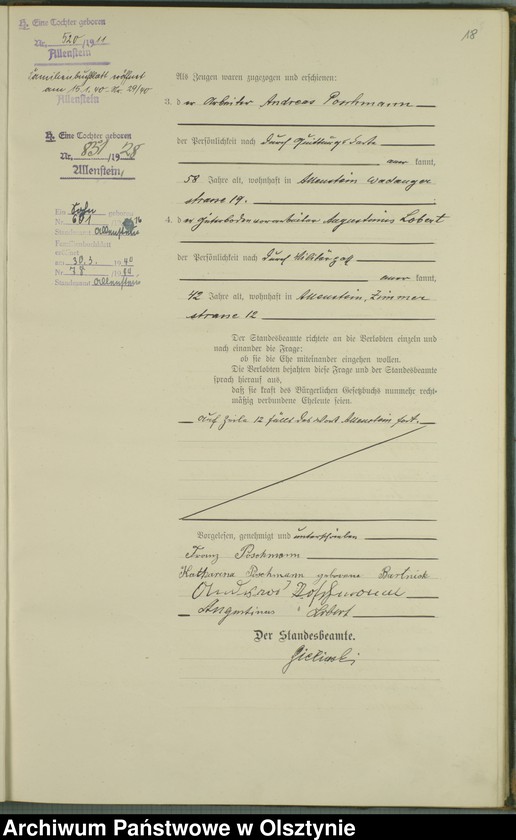 18
H. Eine Tochter geboren
Nr. 520/1911
Allenstein
Familienbuchblatt eröffnet
am 15.1.40. Nr. 29/40
Allenstein
H. Eine Tochter geboren
Nr. 851/1928
Allenstein
Ein Sohn geboren
Nr. 601
Standesamt Allenstein
Familienbuchblatt
eröffnet
am 30.3. 1940
Nr. 78 /1940
Standesamt Allenstein
Als Zeugen waren zugezogen und erschienen:
3. der Arbeiter Andreas Poschmann
der Persönlichkeit nach durch Quittungskarte
aner kannt,
58 Jahre alt, wohnhaft in Allenstein Wadanger
strasse 19.
4. der Güterbodenvorarbeiter Augustinus Lobert
der Persönlichkeit nach durch Militärpaß
aner kannt,
42 Jahre alt, wohnhaft in Allenstein, Zimmer
strasse 12
Der Standesbeamte richtete an die Verlobten einzeln und
nach einander die Frage:
ob sie die Ehe miteinander eingehen wollen.
Die Verlobten bejahten diese Frage und der Standesbeamte
sprach hierauf aus,
daß sie kraft des Bürgerlichen Gesetzbuchs nunmehr recht-
mäßig verbundene Eheleute seien.
Auf Zeile 12 fällt das Wort Allenstein fort.
Vorgelesen, genehmigt und unterschrieben
Franz Poschmann
Katharena Poschmann geborene Barlnick
Andreas Poschmann
Augustinus Lobert
Der Standesbeamte.
Archiwum Państwowe w Olsztynie